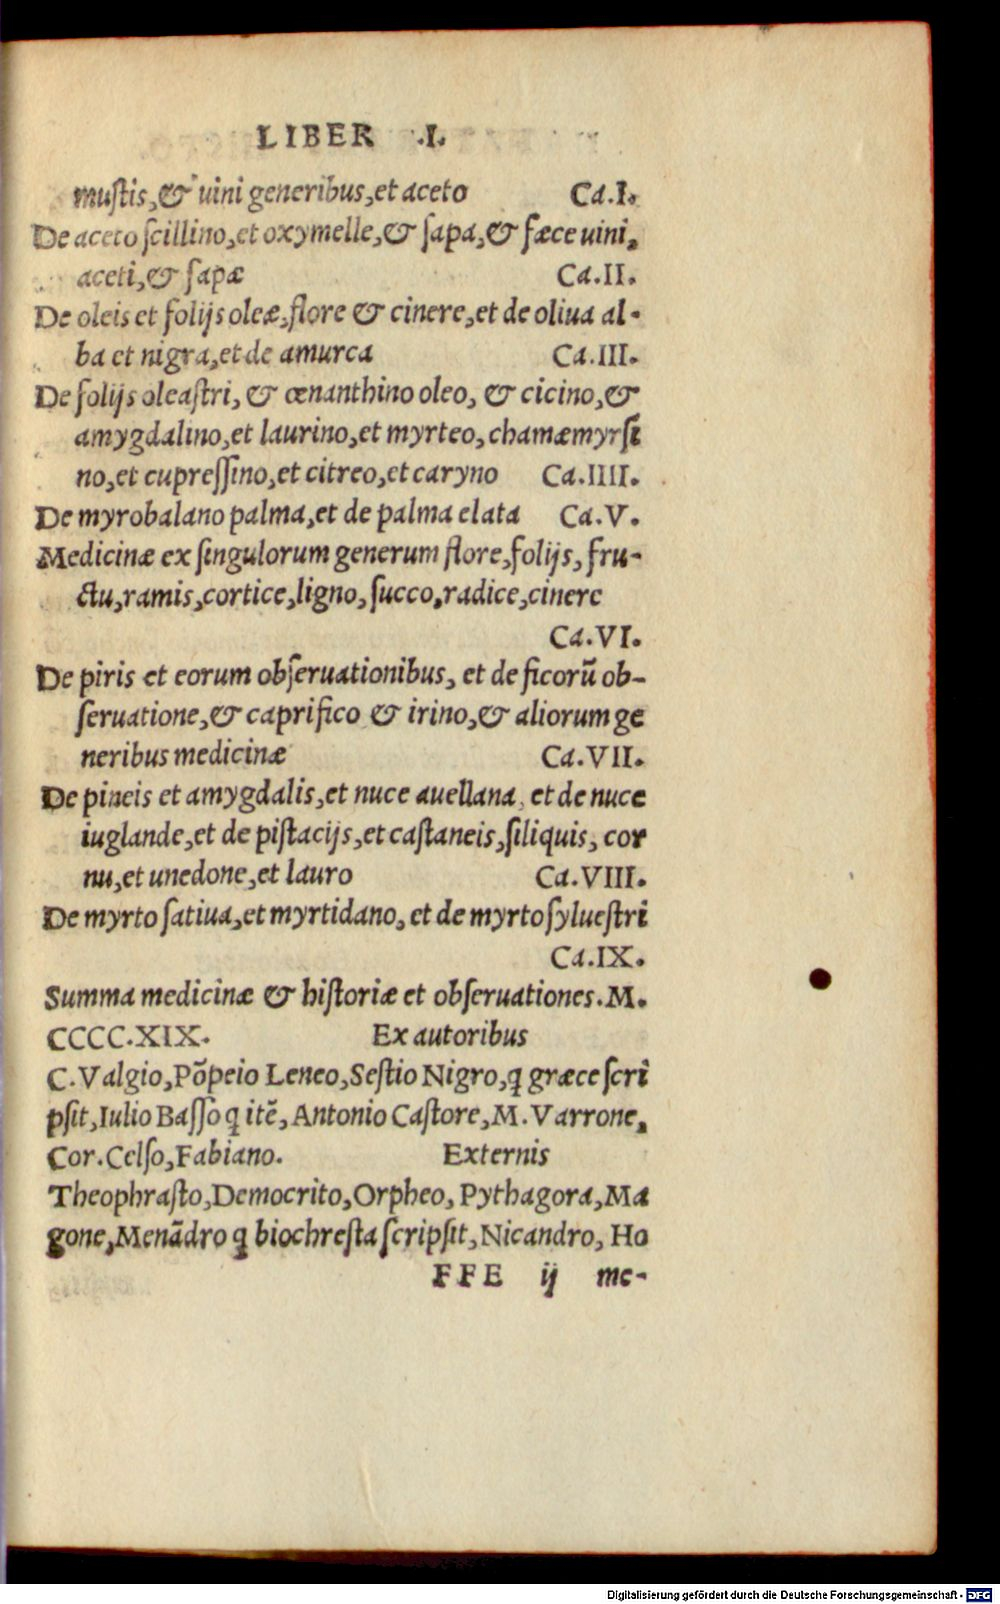 LIBER .I.
muſtis, & uini generibus, et aceto Ca.I.
De aceto ſcillino, et oxymelle, & ſapa, & fæce uini,
aceti, & ſapæ Ca.II.
De oleis et folijs oleæ, flore & cinere, et de oliua al-
ba et nigra, et de amurca Ca.III.
De folijs oleaſtri, & œnanthino oleo, & cicino, &
amygdalino, et laurino, et myrteo, chamæmyrſi
no, et cupreſſino, et citreo, et caryno Ca.IIII.
De myrobalano palma, et de palma elata Ca.V.
Medicinæ ex ſingulorum generum flore, folijs, fru-
ctu, ramis, cortice, ligno, ſucco, radice, cinere
Ca.VI.
De piris et eorum obſeruationibus, et de ficorū ob-
ſeruatione, & caprifico & irino, & aliorum ge
neribus medicinæ Ca.VII.
De pineis et amygdalis, et nuce auellana, et de nuce
iuglande, et de piſtacijs, et caſtaneis, ſiliquis, cor
nu, et unedone, et lauro Ca.VIII.
De myrto ſatiua, et myrtidano, et de myrto ſylueſtri
Ca.IX.
Summa medicinæ & hiſtoriæ et obſeruationes.M.
CCCC.XIX. Ex autoribus
C.Valgio, Põpeio Leneo, Seſtio Nigro, ꝗ græce ſcri
pſit, Iulio Baſſo ꝗ itē, Antonio Caſtore, M.Varrone,
Cor.Celſo, Fabiano. Externis
Theophraſto, Democrito, Orpheo, Pythagora, Ma
gone, Menãdro ꝗ biochreſta ſcripſit, Nicandro, Ho
FFE ij me-
Digitalisierung gefördert durch die Deutsche Forschungsgemeinschaft - DFG